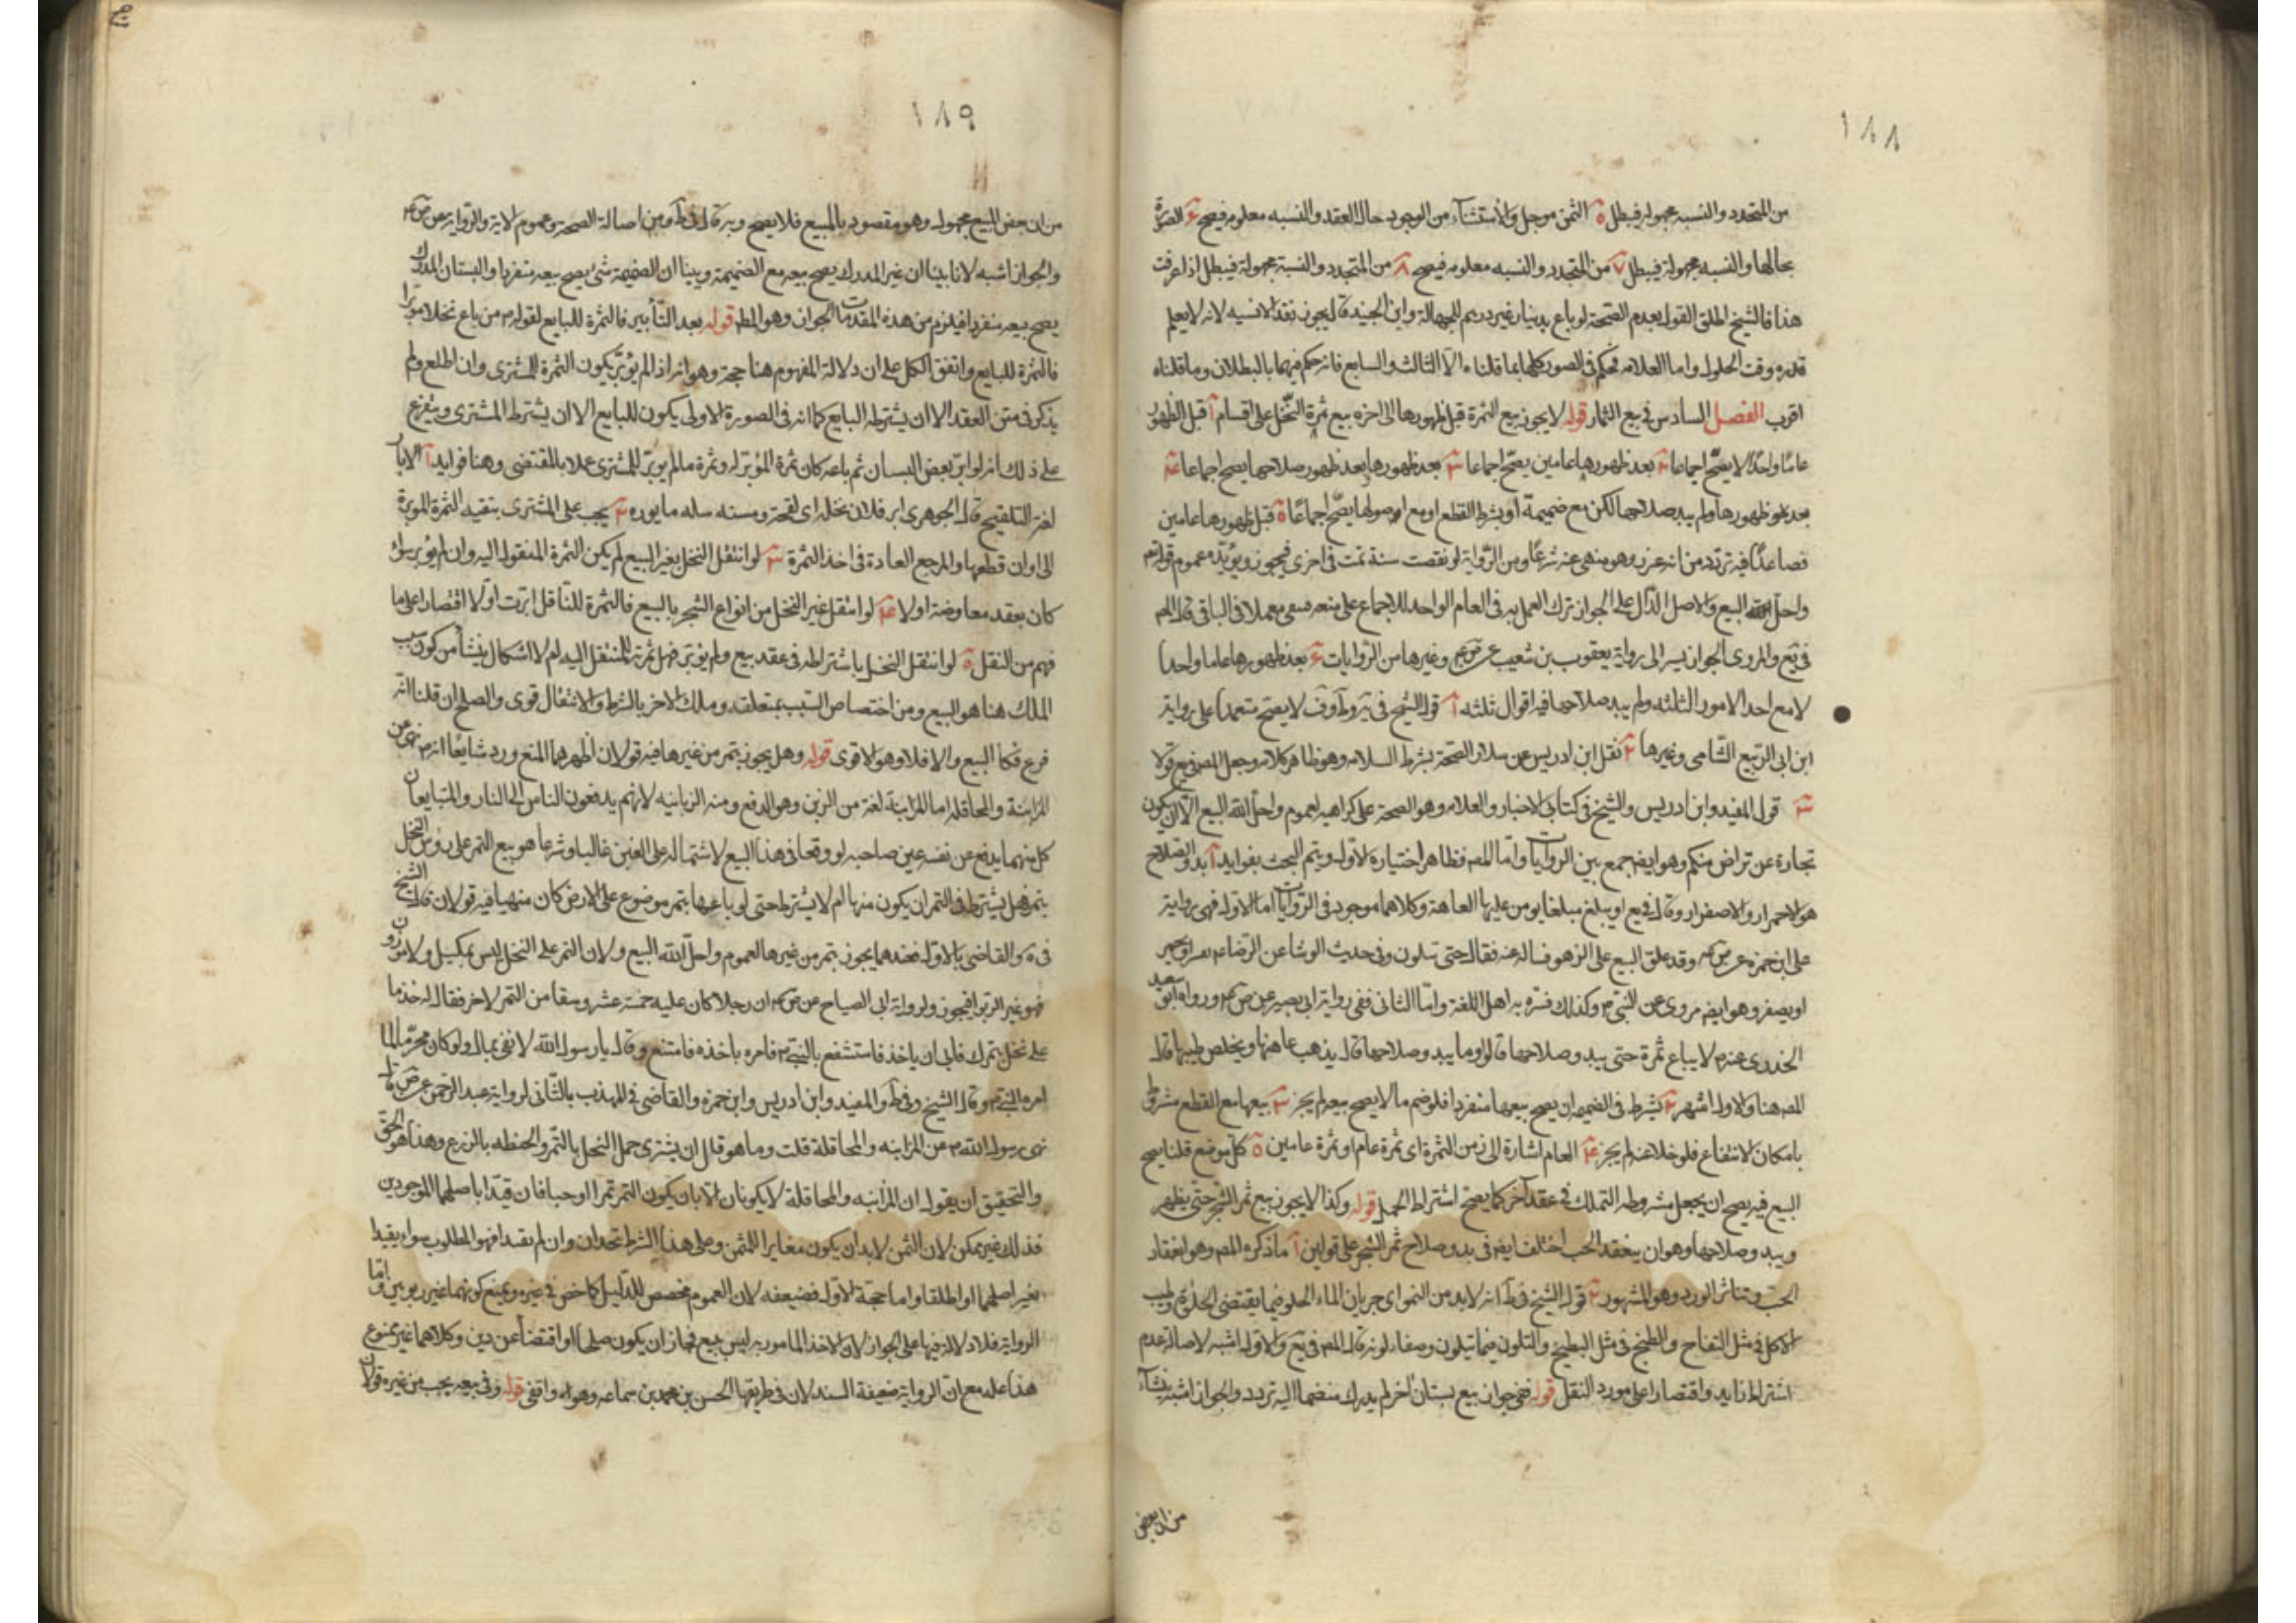 ١٨٨
من المتجدد والنسبه مجهوله فيبطل ة الثمن موجل والاستثناء من الوجود حال العقد والنسبه معلومه فيصح ۶ الصورة
بحالها والنسبه مجهولة فيبطل ٧ من المتجدد والنسبه معلومه فيصح ٨ من المتجدد والنسبة مجهولة فيبطل اذا عرفت
هذا فالشيخ اطلق القول بعدم الصحة لو باع بدينار غير درهم للجهالة وابن الجنيد قال يجوز نقدا لا نسيه لانه لا يعلم
قدره وقت الحلول واما العلامه فحكم في الصور كلها بما قلناه الا الثالث والسابع فانه حكم فيهما بالبطلان وما قلناه
اقرب الفصل السادس في بيع الثمار قوله لا يجوز بيع الثمرة قبل ظهورها الى اخره بيع ثمرة النخل على اقسام آ قبل الظهور
عاما واحدا لا يصح اجماعا ٢ بعد ظهورها عامين يصح اجماعا ٣ بعد ظهورها بعد ظهور صلاحها يصح اجماعا ۴
بعد ظهورها ولم يبد صلاحها لكن مع ضميمة او بشرط القطع او مع اصولها يصح اجماعا ة قبل ظهورها عامين
فصاعدا فيه تردد من انه غرر وهو منهى عنه شرعا ومن الرواية لو نقصت سنة تمت في اخرى فيجوز ويؤيده عموم قوله تع
واحل الله البيع والاصل الدال على الجواز ترك العمل به في العام الواحد للاجماع على منعه فبقى معملا في الباقى قال المص
في يع والمروى الجواز يسير الى رواية يعقوب بن شعيب عن ص ع وغيرها من الروايات ۶ بعد ظهورها عاما واحدا
لا مع احد الامور الثلثه ولم يبد صلاحها فيه اقوال ثلثه آ قول الشيخ في يه وط وف لا يصح معتمدا على رواية
ابن ابى الربيع الشامى وغيرها ٢ نقل ابن ادريس عن سلار الصحة بشرط السلامه وهو ظاهر كلامه وجعل المص في يع قولا
٣ قول المفيد وابن ادريس والشيخ في كتابى الاخبار والعلامه وهو الصحة على كراهيه لعموم واحل الله البيع الا ان يكون
تجارة عن تراض منكم وهو ايضا جمع بين الروايات واما المص فظاهر اختياره الاول ويتم البحث بفوايد آ بدو الصلاح
هو الاحمرار والاصفرار وقال في يع او يبلغ مبلغا يومن عليها العاهة وكلاهما موجود في الروايات اما الاول فهى رواية
على ابن حمزه عن ص ع وقد علق البيع على الزهو فساله عنه فقال حتى تتلون وفى حديث الوشا عن الرضا ع
او يصفر وهو ايضا مروى عن النبى ص وكذلك فسره به اهل اللغة واما الثانى ففى رواية ابى بصير عن ص ع ورواه ابو سعيد
الخدرى عنه ص لا يباع ثمرة حتى يبدو صلاحها قالوا وما يبدو صلاحها قال يذهب عاهتها ويخلص طيبها قال
المص هنا والاول اشهر ٢ يشترط في الضميمه ان يصح بيعها منفردا فلو ضم ما لا يصح بيعه لم يجز ٣ بيعها مع القطع مشروط
بامكان الانتفاع فلو خلا عنه لم يجز ۴ العام اشارة الى زمن الثمرة اى ثمرة عام او ثمرة عامين ة كل موضع قلنا يصح
البيع فيه يصح ان يجعل مشروطه التملك في عقد آخر كما يصح اشتراط الحمل قوله وكذا لا يجوز بيع ثمر الشجر حتى يظهر
ويبدو صلاحها وهو ان ينعقد الحب اختلف ايضا في بدو صلاح ثمر الشجر على قولين آ ما ذكره المص وهو انعقاد
الحب وتناثر الورد وهو المشهور ٢ قول الشيخ في ط انه لابد من النمو اى جريان الماء الحلو فيما يقتضى الحلاوة وطيب
الاكل في مثل التفاح والنضج في مثل البطيخ والتلون فيما يتلون وصفاء لونه قال المص في يع والاول اشبه لاصالة عدم
اشتراط زايد واقتصارا على مورد النقل قوله ففى جواز بيع بستان اخر لم يدرك منضما اليه تردد والجواز اشبه ينشاء
من ان بعض
١٨٩
من ان بعض المبيع مجهول وهو مقصود بالمبيع فلا يصح وبه قال في ط ومن اصالة الصحة وعموم الاية والرواية عن ص ع
والجواز اشبه لانا بينا ان غير المدرك يصح بيعه مع الضميمة وبينا ان الضميمة شئ يصح بيعه منفردا والبستان المدرك
يصح بيعه منفردا فيلزم من هذه المقدمات الجواز وهو المط قوله بعد التأبير فالثمرة للبايع لقوله ص من باع نخلا موبرا
فالثمرة للبايع واتفق الكل على ان دلالة المفهوم هنا حجة وهو انه اذا لم يؤبر يكون الثمرة للمشترى وان اطلع ولم
يذكر في متن العقد الا ان يشترطه البايع كما انه في الصورة الاولى يكون للبايع الا ان يشترط المشترى ويتفرع
على ذلك انه لو ابر بعض البستان ثم باعه كان ثمرة المؤبر له وثمرة ما لم يوبر للمشترى عملا بالمقتضى وهنا فوايد آ الابار
لغة التلقيح قال الجوهرى ابر فلان نخله اى لقحه ومنه سله مابوره ٢ يجب على المشترى بتقيه الثمرة الموبرة
الى اوان قطعها والمرجع العادة في اخذ الثمرة ٣ لو انتقل النخل بغير البيع لم يكن الثمرة المنقول اليه وان لم يؤبر سواء
كان بعقد معاوضة اولا ۴ لو انتقل غير النخل من انواع الشجر بالبيع فالثمرة للناقل ابرت اولا اقتصارا على ما
فهم من النقل ة لو انتقل النخل باشتراطه في عقد بيع ولم يؤبر فهل ثمرته للمنتقل اليه ام لا اشكال ينشأ من كون سبب
الملك هنا هو البيع ومن اختصاص السبب بمتعلقه وملك الاخر بالشرط والانتقال قوى والصلح ان قلنا انه
فرع فكا البيع والا فلا وهو الاقوى قوله وهل يجوز بتمر من غيرها فيه قولان اظهرهما المنع ورد شايعا انه ص نهى عن
المزابنة والمحاقله اما المزابنة لغة من الزبن وهو الدفع ومنه الزبانيه لانهم يدفعون الناس الى النار والمتبايعان
كل منهما يدفع عن نفسه عين صاحبه لو وقعا في هذا البيع لاشتماله على الغبن غالبا وشرعا هو بيع التمر على روس النخل
بتمر فهل يشترط في التمر ان يكون منها ام لا يشترط حتى لو باعها بتمر موضوع على الارض كان منهيا فيه قولان قال الشيخ
في ية والقاضى بالاول فعندهما يجوز بتمر من غيرها لعموم واحل الله البيع ولان التمر على النخل ليس بمكيل ولا موزون
فهو غير الربوا فيجوز ولرواية ابى الصباح عن ص ع ان رجلا كان عليه خمسة عشر وسقا من التمر لاخر فقال له خذ ما
على نخلى بتمرك فابى ان ياخذ فاستشفع بالنبى ص فامره باخذه فامتنع وقال يا رسول الله لا تفى بمالى ولو كان محرما لما
امره النبى ص وقال الشيخ وفى ط والمفيد وابن ادريس وابن حمزه والقاضى في المهذب بالثانى لرواية عبد الرحمن عن ص قال
نهى رسول الله ص من المزابنه والمحاقلة قلت وما هو قال ان يشترى حمل النخل بالتمر والحنطه بالزرع وهذا هو الحق
والتحقيق ان يقول ان المزابنه والمحاقلة لا يكونان الا بان يكون الثمر تمرا او حبا فان قيدا باصلهما الموجودين
فذلك غير ممكن لان الثمن لابد ان يكون مغايرا للمثمن وعلى هذا الشرط تحدان وان لم يقيد فهو المطلوب سواء يقيدا
بغير اصلهما او اطلقا واما حجة الاول فضيعفه لان العموم مخصص للدليل كما خص في غيره ويمنع كونهما غير ربويين واما
الرواية فلا دلالة فيها على الجواز لان الاخذ المامور به ليس ببيع فجاز ان يكون صلحا او اقتضاء عن دين وكلاهما غير ممنوع
هذا عله مع ان الرواية ضعيفة السند لان في طريقها الحسن بن محمد بن سماعه وهو واقفى قوله وفى بيعه بحب من غيره قولان